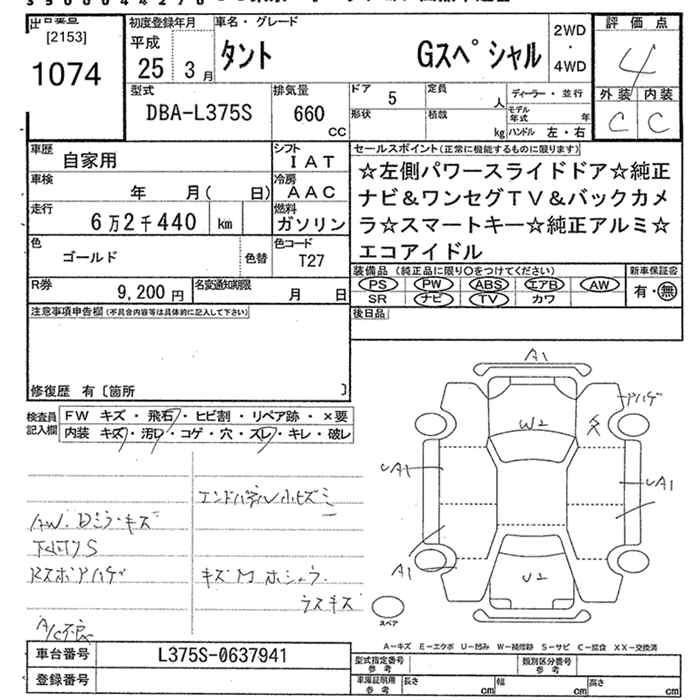 出品票
[2153]
1074
初度登録年月
平成
25 3月
車名・グレード
タント Gスペシャル
2WD
・
4WD
評価点
4
外装 内装
C C
型式
DBA-L375S
排気量
660
cc
ドア 5
定員 人
形状
積載 kg
ディーラー・並行
モデル年式 年
ハンドル 左・右
車歴
自家用
シフト
IAT
車検
年 月( 日)
冷房
AAC
走行
6万2千440 km
燃料
ガソリン
色
ゴールド
色替
色コード
T27
R券
9,200円
名変通知期限
月 日
セールスポイント(正常に機能するものに限ります)
☆左側パワースライドドア☆純正
ナビ&ワンセグTV&バックカメ
ラ☆スマートキー☆純正アルミ☆
エコアイドル
装備品 (純正品に限り○をつけてください)
PS PW ABS エアB AW
SR ナビ TV カワ
新車保証書
有・無
後日品
注意事項申告欄(不具合内容等は具体的に記入して下さい)
修復歴 有〔箇所 〕
検査員
記入欄
FW キズ・飛石・ヒビ割・リペア跡・×要
内装 キズ・汚れ・コゲ・穴・スレ・キレ・破レ
AW.Dミラーキズ
下廻りS
A/C不良
A1
W2
UA1
UA1
A1
U2
スペア
A-キズ E-エクボ U-凹み W-補修跡 S-サビ C-腐食 XX-交換済
車台番号
L375S-0637941
登録番号
型式指定番号
参考
類別区分番号
参考
車庫証明用
参考
長さ cm
幅 cm
高さ cm